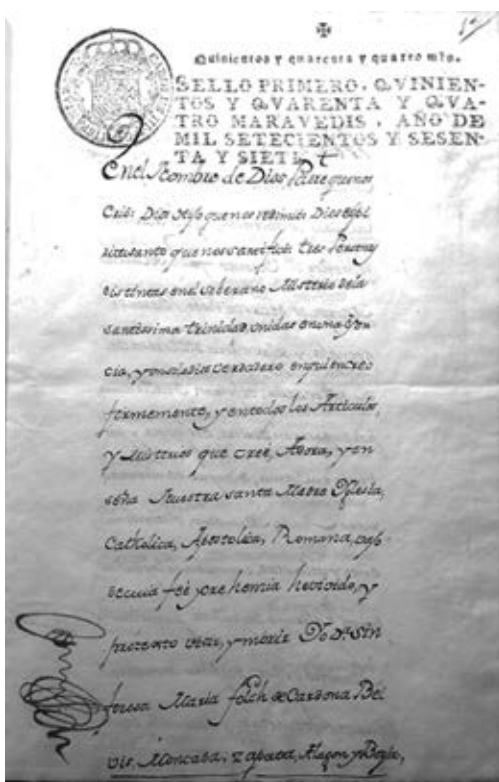 Quinientos y quarenta y quatro mrs.
SELLO PRIMERO, QVINIEN-
TOS Y QVARENTA Y QVA-
TRO MARAVEDIS, AÑO DE
MIL SETECIENTOS Y SESEN-
TA Y SIETE
En el Nombre de Dios Padre que nos
Crió: Dios Hijo que nos redimió: Dios
santo que nos santificó: tres Personas
distintas en el soberano Misterio de la
santissima trinidad, unidas en una
cia, y un solo Dios verdadero en quien creo
firmemente, y en todos los Articulos,
y Misterios que cree, Adora, y en
seña Nuestra santa Madre Yglesia,
Catholica, Apostolica, Romana, en
cuia feè y he vivido, y
protexto vivir, y morir Yo Dª. Sin
foresa Maria folch de Cardona Bel
vis, Moncada, Zapata, Alagon y Borja,